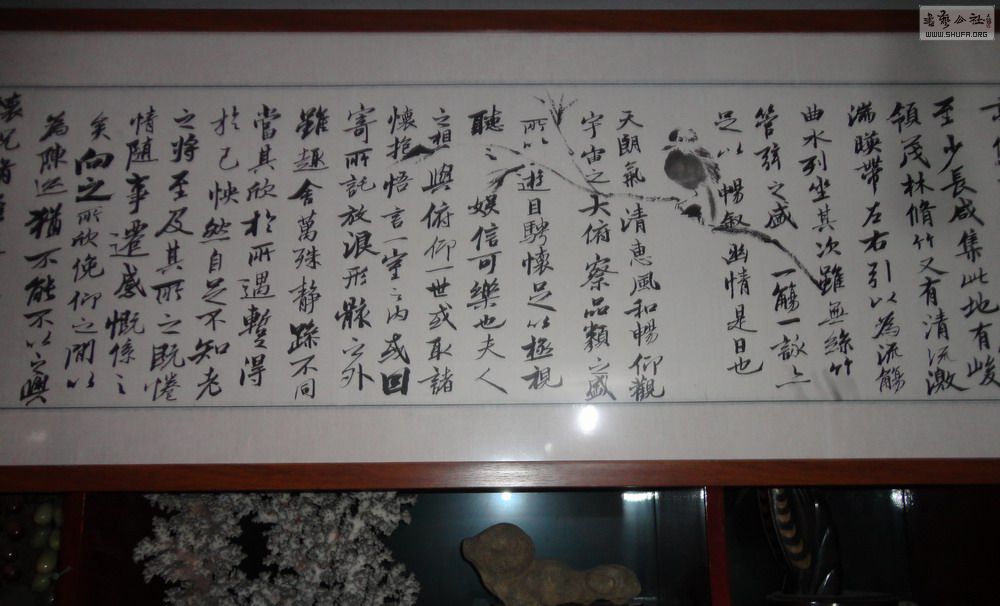 至少長咸集此地有峻
領茂林脩竹又有清流激
湍暎帶左右引以為流觴
曲水列坐其次雖無絲竹
管弦之盛一觴一詠亦
足以暢敘幽情是日也
天朗氣清惠風和暢仰觀
宇宙之大俯察品類之盛
所以遊目騁懷足以極視
聽娛信可樂也夫人
之相與俯仰一世或取諸
懷抱悟言一室之內或因
寄所託放浪形骸之外
雖趣舍萬殊靜躁不同
當其欣於所遇暫得
於己怏然自足不知老
之將至及其所之既惓
情隨事遷感慨係之
矣向之所欣俛仰之間以
為陳迹猶不能不以之興
懷況脩
書藝公社
WWW.SHUFA.ORG